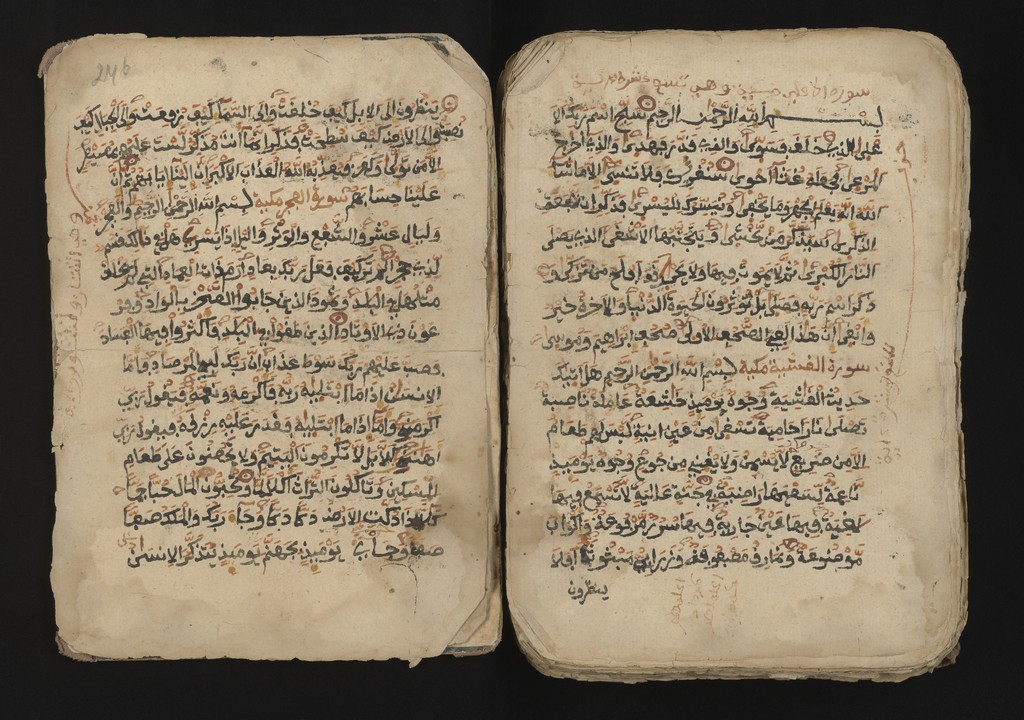 بسم الله الرحمن الرحيم سبح اسم ربك الا
على الذي خلق فسوى والذي قدر فهدى والذي أخرج
المرعى فجعله غثاء احوى سنقرئك فلا تنسى الا ما شاء
الله انه يعلم الجهر وما يخفى ونيسرك لليسرى فذكر ان نفعت
الذكرى سيذكر من يخشى ويتجنبها الاشقى الذي يصلى
النار الكبرى ثم لا يموت فيها ولا يحيى قد افلح من تزكى و
ذكر اسم ربه فصلى بل تؤثرون الحيوة الدنيا والاخرة خير
وابقى ان هذا لفي الصحف الاولى صحف ابراهيم وموسى
سورة الغشية مكية بسم الله الرحمن الرحيم هل اتيك
حديث الغشية وجوه يومئذ خشعة عاملة ناصبة
تصلى نارا حامية تسقى من عين انية ليس لهم طعام
الا من ضريع لا يسمن ولا يغني من جوع وجوه يومئذ
ناعمة لسعيها راضية في جنة عالية لا تسمع فيها
لغية فيها عين جارية فيها سرر مرفوعة واكواب
موضوعة ونمارق مصفوفة وزرابي مبثوثة افلا
ينظرون
ينظرون الى الابل كيف خلقت والى السماء كيف رفعت والى الجبال كيف
نصبت والى الارض كيف سطحت فذكر انما انت مذكر لست عليهم بمصيطر
الا من تولى وكفر فيعذبه الله العذاب الاكبر ان الينا ايابهم ثم ان
علينا حسابهم سورة الفجر مكية بسم الله الرحمن الرحيم والفجر
وليال عشر والشفع والوتر واليل اذا يسر هل في ذالك قسم
لذي حجر الم تر كيف فعل ربك بعاد ارم ذات العماد التي لم يخلق
مثلها في البلد وثمود الذين جابوا الصخر بالواد وفر
عون ذي الاوتاد الذين طغوا في البلد فاكثروا فيها الفساد
فصب عليهم ربك سوط عذاب ان ربك لبالمرصاد فاما
الانسن اذا ما ابتليه ربه فاكرمه ونعمه فيقول ربي
اكرمن واما اذا ما ابتليه فقدر عليه رزقه فيقول ربي
اهنن كلا بل لا تكرمون اليتيم ولا تحضون على طعام
المسكين وتاكلون التراث اكلا لما وتحبون المال حبا جما
كلا اذا دكت الارض دكا دكا وجاء ربك والملك صفا
صفا وجاىء يومئذ بجهنم يومئذ يتذكر الانسن